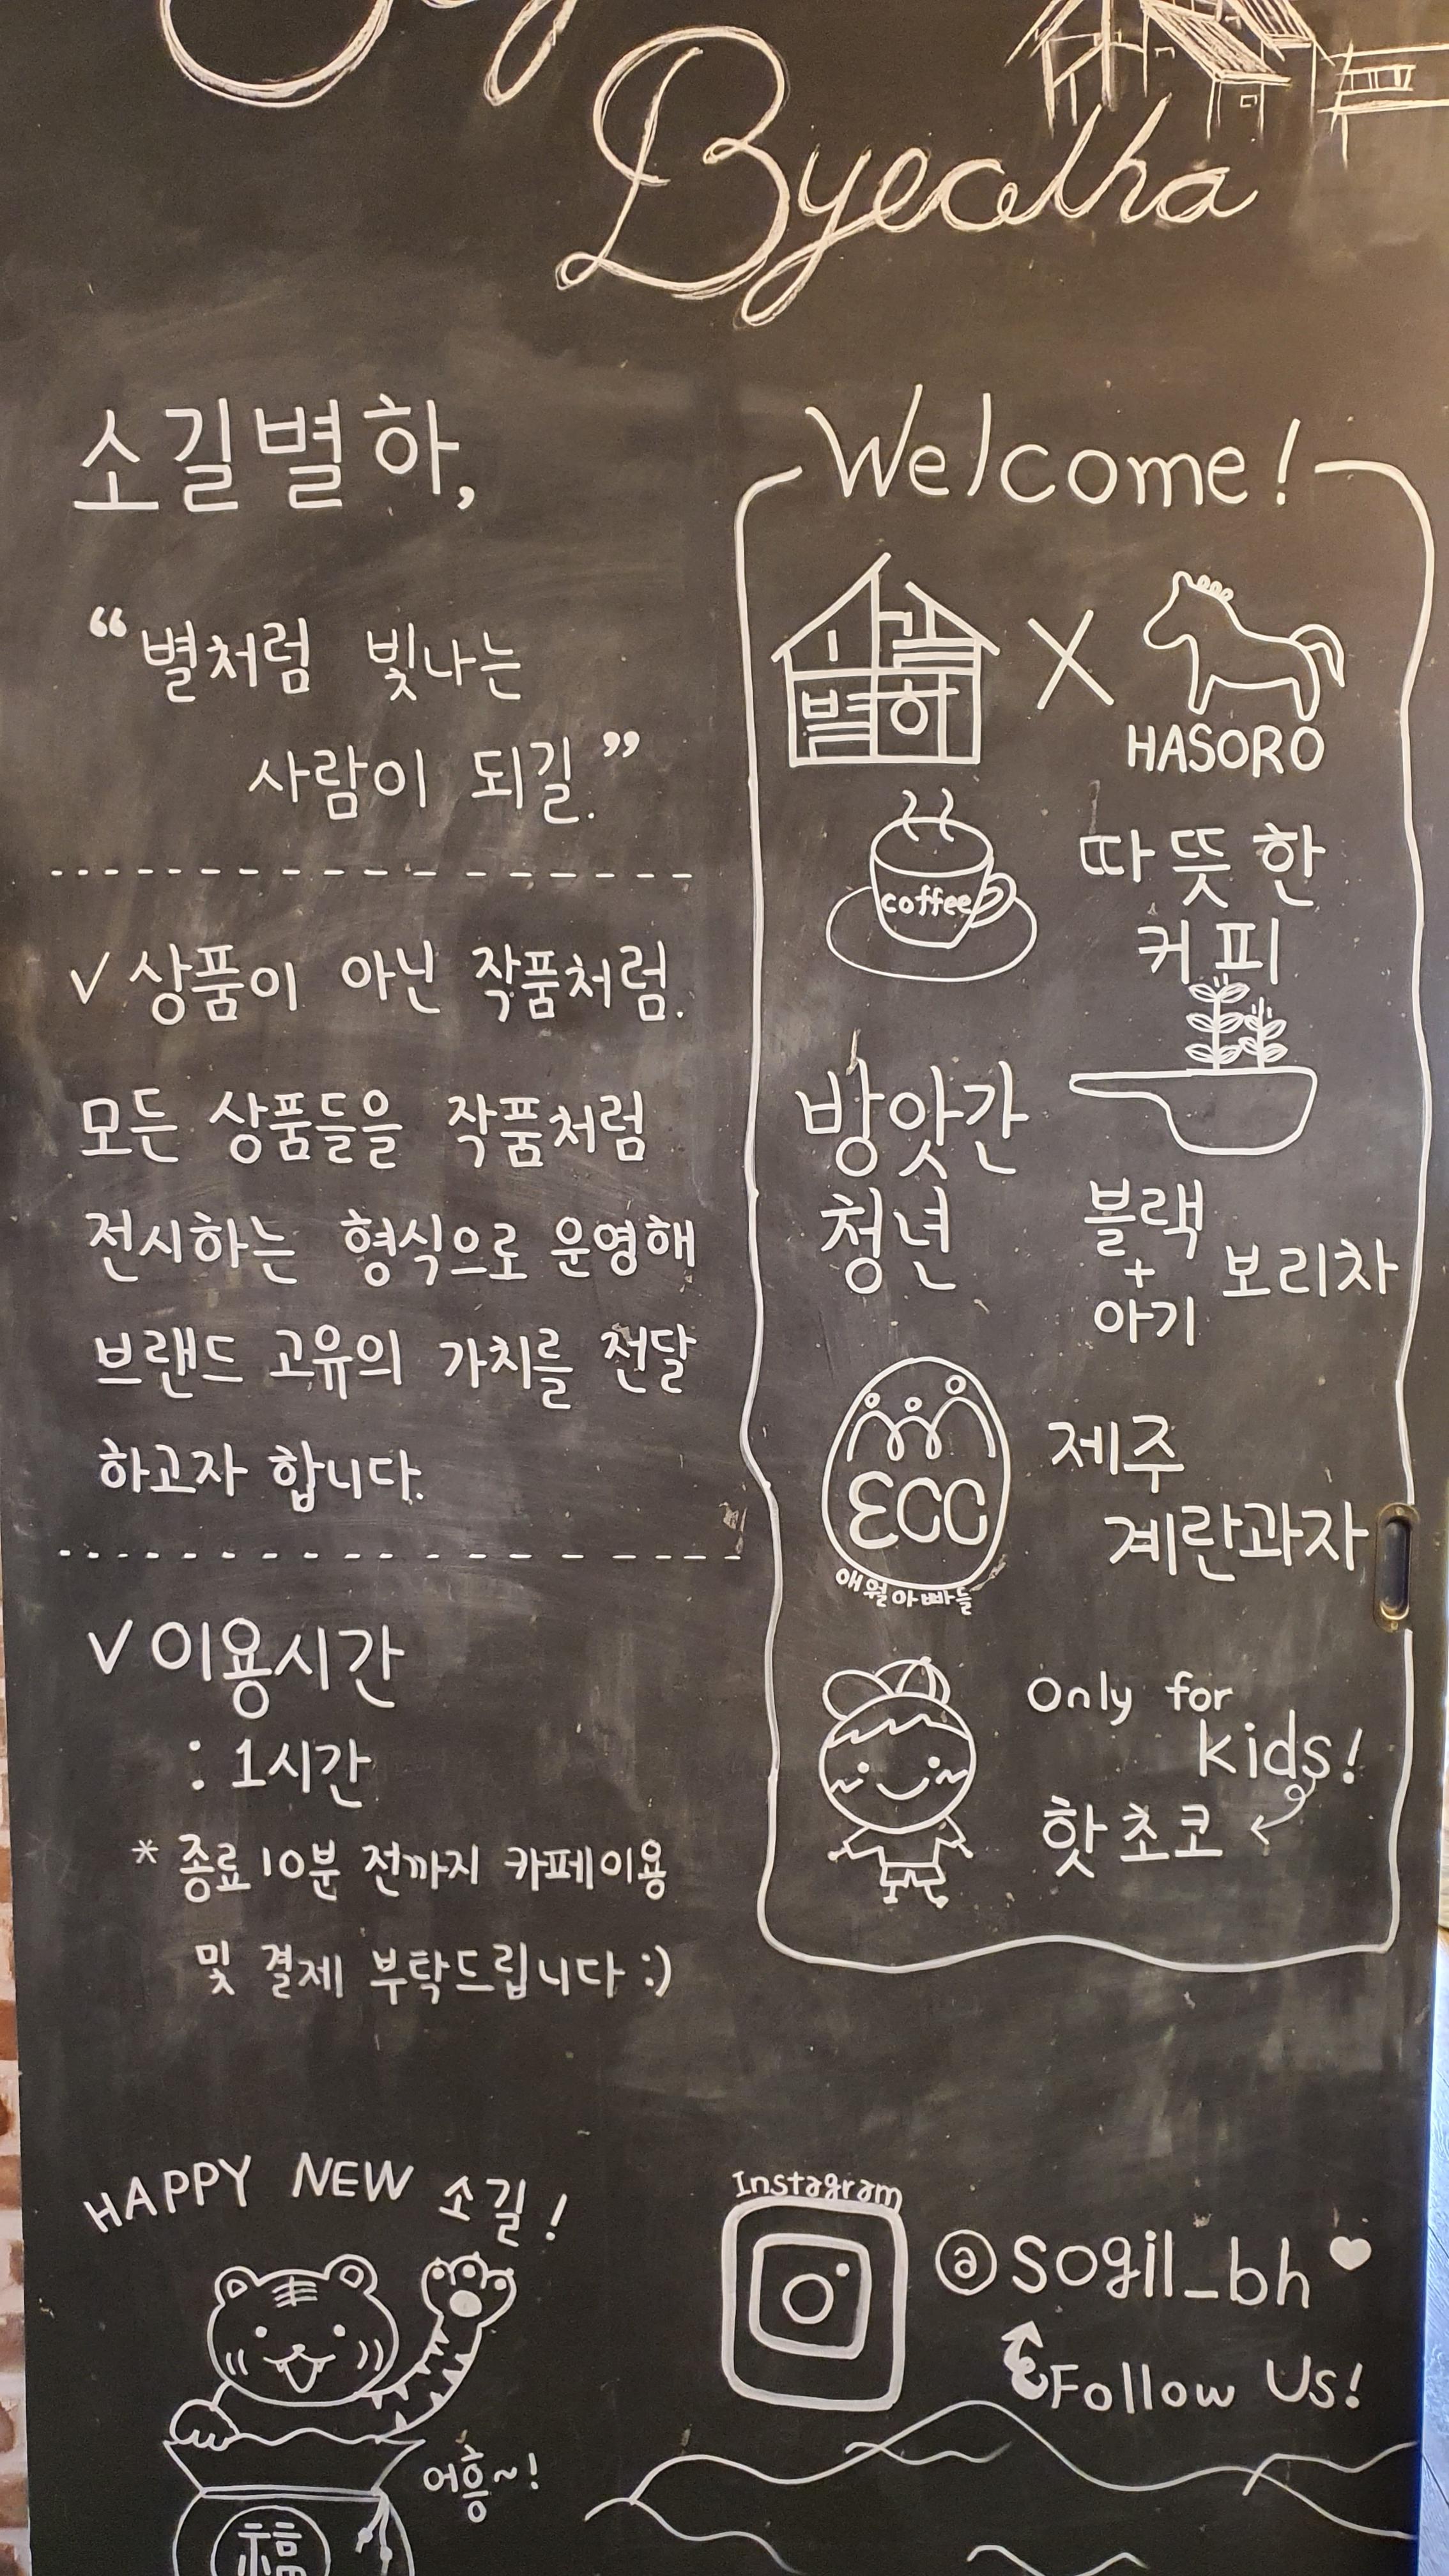 Byeolha
소길별하,
“별처럼 빛나는
사람이 되길.”
✓ 상품이 아닌 작품처럼.
모든 상품들을 작품처럼
전시하는 형식으로 운영해
브랜드 고유의 가치를 전달
하고자 합니다.
✓ 이용시간
: 1시간
* 종료 10분 전까지 카페이용
및 결제 부탁드립니다 :)
Welcome!
소길
별하
X
HASORO
coffee
따뜻한
커피
방앗간
청년
블랙
+
아기
보리차
ECC
애월아빠들
제주
계란과자
Only for
kids!
핫초코
HAPPY NEW 소길!
어흥~!
福
Instagram
@sogil_bh
Follow Us!